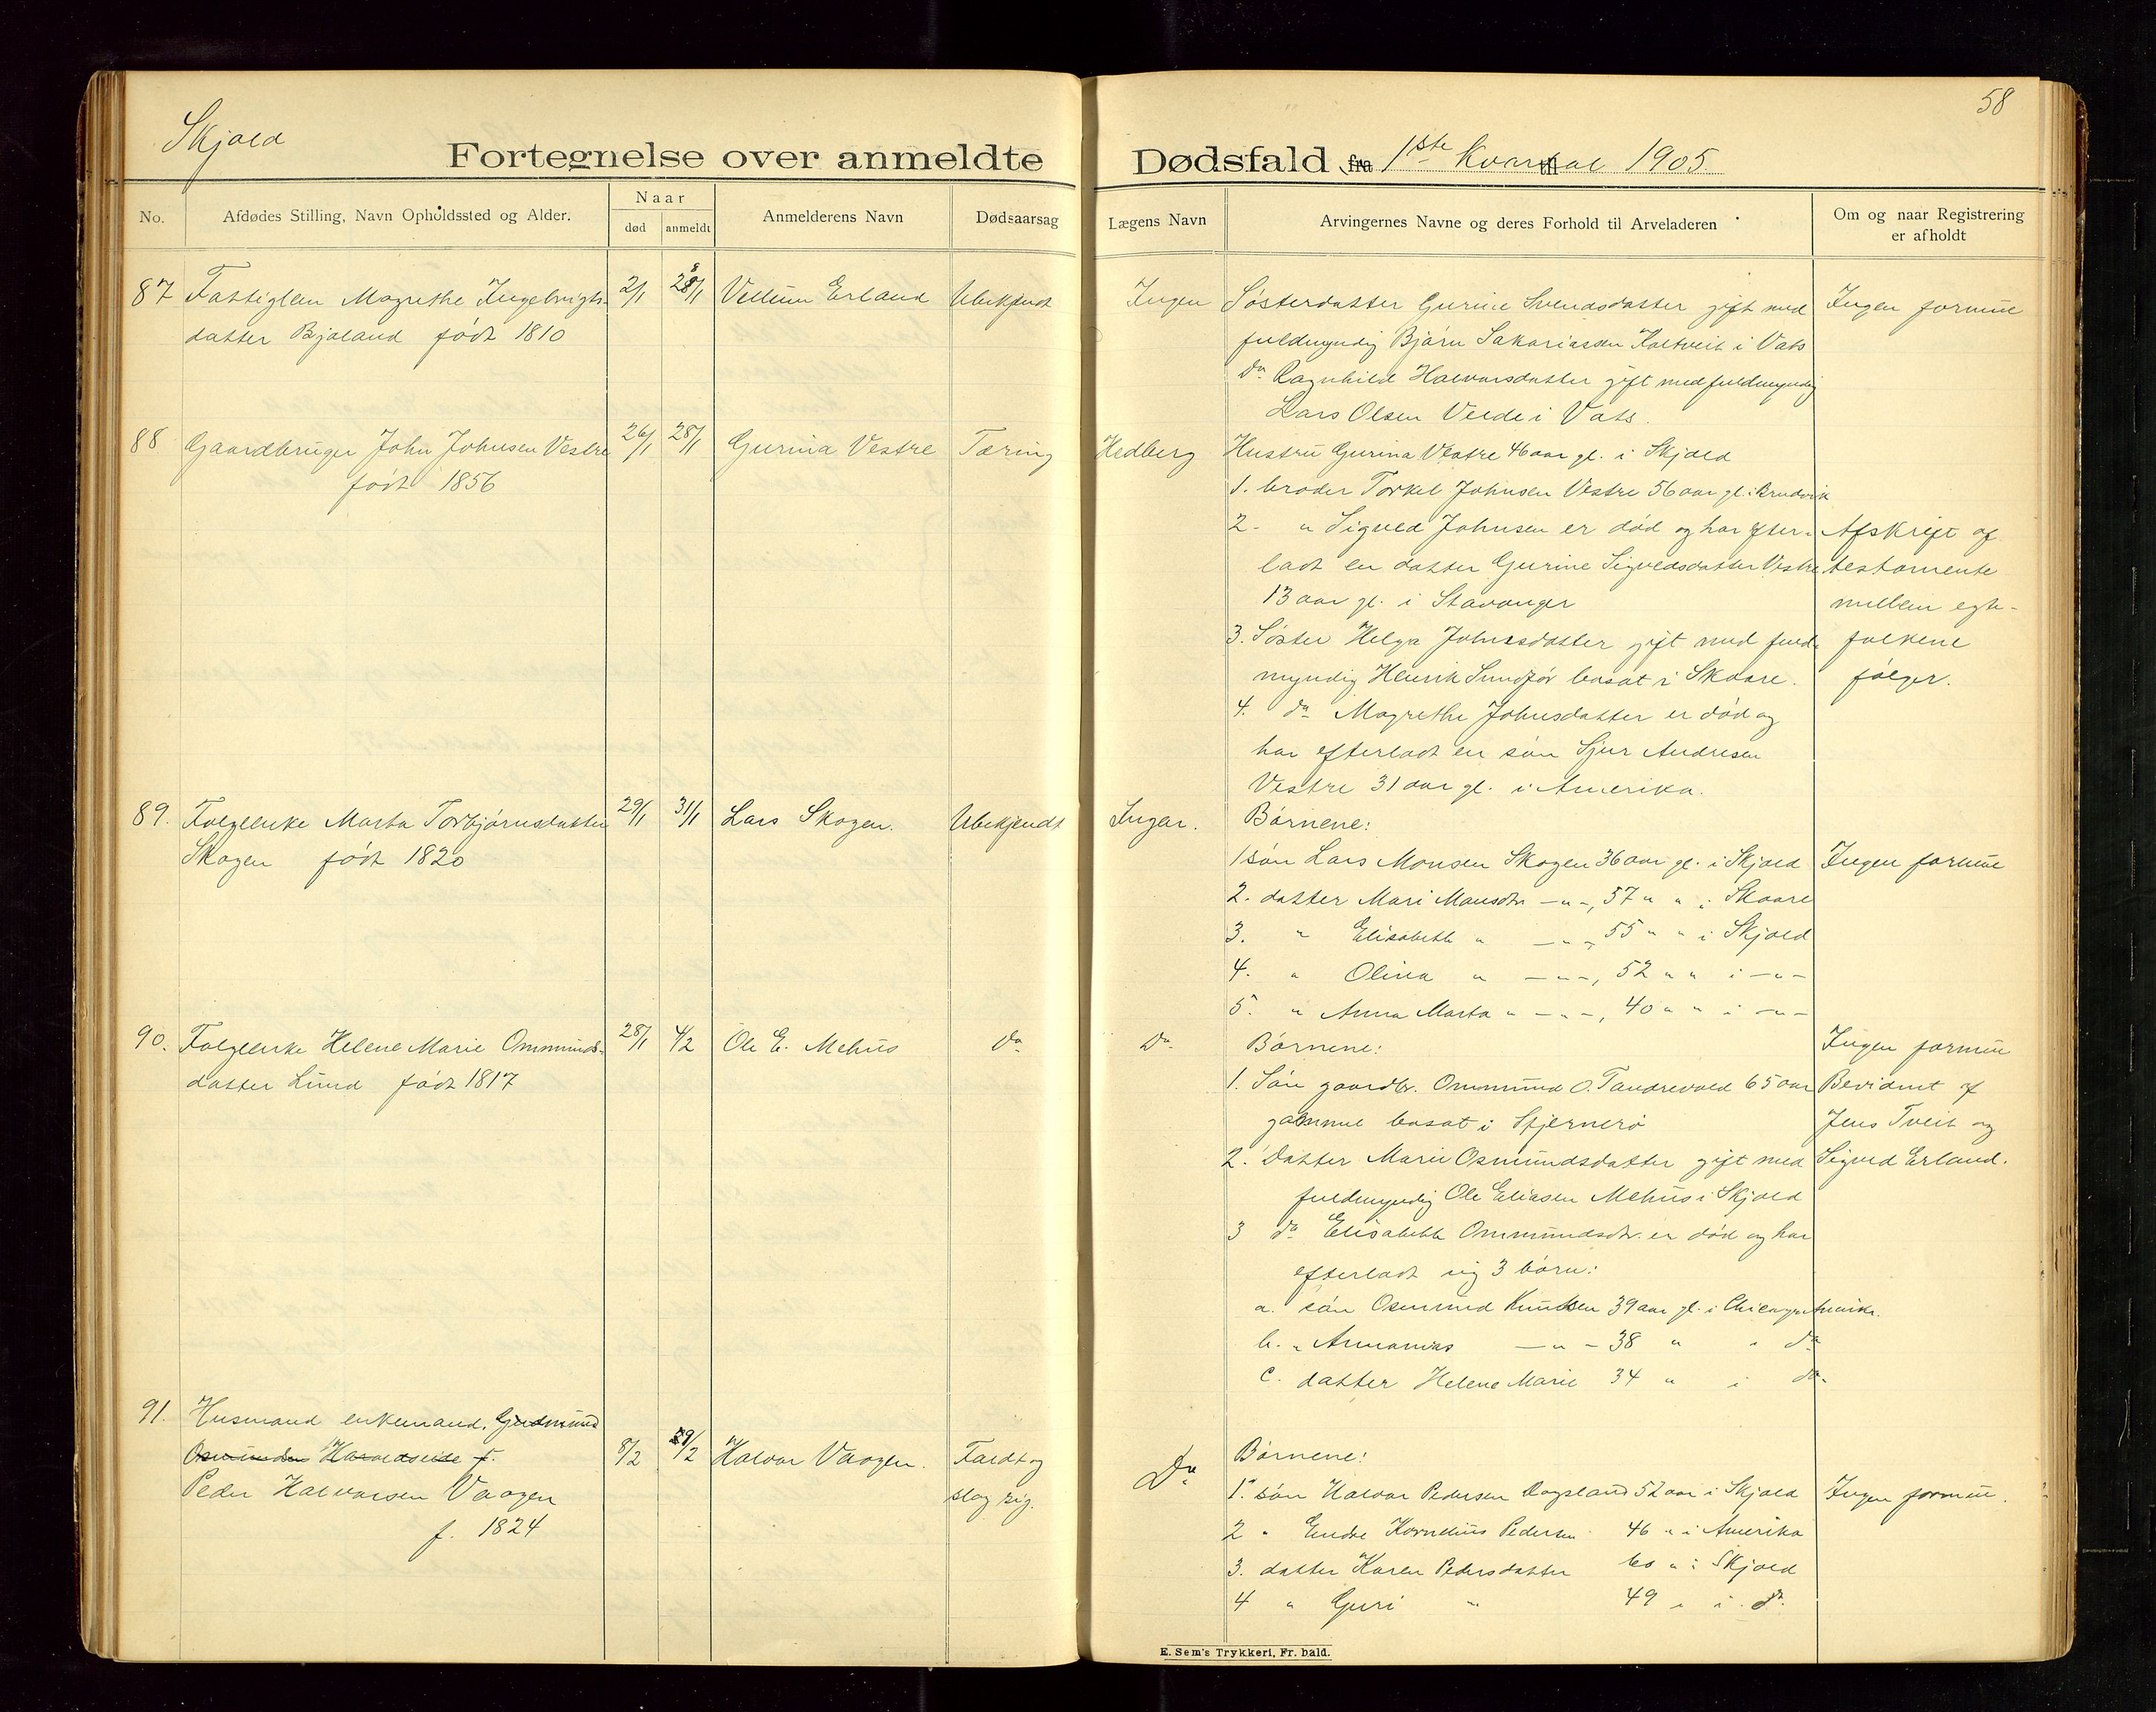 58
Skjold
Fortegnelse over anmeldte Dødsfald fra 1ste Kvartal til 1905.
No.
Afdødes Stilling, Navn Opholdssted og Alder.
Naar
død
anmeldt
Anmelderens Navn
Dødsaarsag
Lægens Navn
Arvingernes Navne og deres Forhold til Arveladeren
Om og naar Registrering
er afholdt
87 Fattiglem Magrethe Ingebrigts- 2/1 28/1 Vellum Erland Ubekjendt Ingen Søsterdatter Gurine Svendsdatter gift med Ingen formue
datter Bjoland født 1810 fuldmyndig Bjørn Sakariassen Kaltveit i Vats
do Ragnhild Halvorsdatter gift med fuldmyndig
Lars Olsen Velde i Vats.
88 Gaardbruger John Johnsen Vestre 26/1 28/1 Gurina Vestre Tæring Hedberg Hustru Gurina Vestre 46 aar gl. i Skjold
født 1856
1. broder Torkel Johnsen Vestre 56 aar gl. i Bruvik
2. " Sigved Johnsen er død og har efter- Afskrift af
ladt en datter Gurine Sigvedsdatter Vestre testamente
13 aar gl. i Stavanger mellem egte-
3. Søster Helga Johnsdatter gift med fuld- folkene
myndig Henrik Sundfør bosat i Skaare. følger.
4. do Magrethe Johnsdatter er død og
har efterladt en søn Sjur Andresen
Vestre 31 aar gl. i Amerika.
89. Folgeenke Marta Torbjørnsdatter 29/1 31/1 Lars Skogen. Ubekjendt Ingen. Børnene:
Skogen født 1820 1 søn Lars Monsen Skogen 36 aar gl. i Skjold Ingen formue
2. datter Mari Monsdtr. —"—, 57 " " i Skaare
3. " Elisabeth " —"—, 55 " " i Skjold
4. " Olina " —"—, 52 " " i —"—
5. " Anna Marta " —"—, 40 " " i —"—
90. Folgeenke Helene Marie Ommunds- 28/1 4/2 Ole E. Mehus do Do. Børnene: Ingen formue
datter Lund født 1817 1. Søn gaardbr. Ommund O. Tandrevold 65 aar Bevidnet af
gammel bosat i Sjernerø Jens Tveit og
2. Datter Marie Osmundsdatter gift med Sigved Erland.
fuldmyndig Ole Eliasen Mehus i Skjold
3 do Elisabeth Ommundsdtr. er død og har
efterladt sig 3 børn:
a. søn Osmund Knutsen 39 aar gl. i Chicago Amerika.
b. " Annanias —"— 38 " " do
c. datter Helene Marie 34 " i do.
91. Husmand enkemand. Gudmund
Osmunden Haraldseide f. 8/2 29/2 Halvor Vaagen. Faldt og Do. Børnene:
Peder Halvorsen Vaagen slog sig. 1. søn Halvor Pedersen Dagsland 52 aar i Skjold Ingen formue.
f. 1824 2 " Endre Kornelius Pedersen 46 " i Amerika
3. datter Karen Pedersdatter 60 " i Skjold
4 " Guri " 49 " i do.
E. Sem's Trykkeri, Fr. hald.